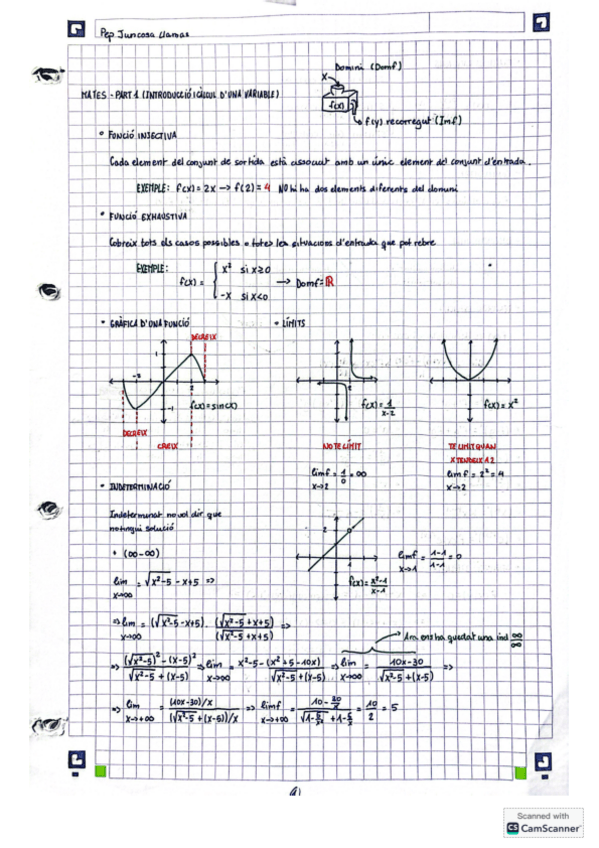 Pep Juncosa Llamas
Domini (Domf)
X
f(x)
f(y) recorregut (Imf)
MATES - PART 1 (INTRODUCCIÓ I CÀLCUL D'UNA VARIABLE)
• FUNCIÓ INJECTIVA
Cada element del conjunt de sortida està associat amb un únic element del conjunt d'entrada.
EXEMPLE: f(x) = 2x → f(2) = 4 NO hi ha dos elements diferents del domini
• FUNCIÓ EXHAUSTIVA
Cobreix tots els casos possibles o totes les situacions d'entrada que pot rebre
EXEMPLE:
f(x) = { x² si x≥0
-x si x<0
→ Domf = ℝ
• GRÀFICA D'UNA FUNCIÓ
• LÍMITS
DECREIX
1
-2
2
-1
f(x)=sin(x)
DECREIX
CREIX
2
f(x) = 1/(x-2)
f(x) = x²
NO TE LÍMIT
TE LIMIT QUAN
X TENDEIX A 2
lim f = 1/0 = ∞
x→2
lim f = 2² = 4
x→2
• INDETERMINACIÓ
Indeterminat no vol dir que
no tingui solució
2
1
f(x) = (x²-1)/(x-1)
lim f = (1-1)/(1-1) = 0
x→1
• (∞-∞)
lim = √(x²-5) - x+5 =>
x→∞
=> lim = (√(x²-5) -x+5) · (√(x²-5) +x+5)/(√(x²-5) +x+5) =>
x→∞
Ara ens ha quedat una ind ∞/∞
=> ((√(x²-5))² - (x-5)²)/(√(x²-5) + (x-5)) => lim = (x²-5-(x²+5-10x))/(√(x²-5) + (x-5)) => lim = (10x-30)/(√(x²-5) + (x-5)) =>
x→∞ x→∞
=> lim = ((10x-30)/x)/((√(x²-5) + (x-5))/x) => lim f = (10 - 30/x)/(√(1-5/x²) + 1 - 5/x) = 10/2 = 5
x→+∞ x→+∞
Scanned with
CS CamScanner